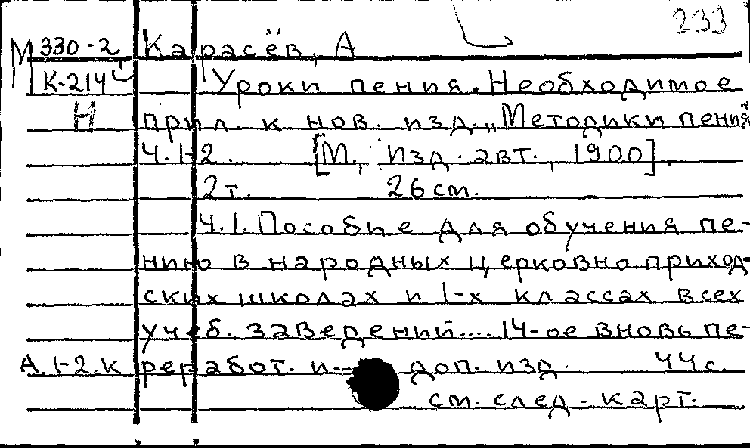 233
М 330-2 Карасёв, А
К-214 Уроки пения. Необходимое
Н прил. к нов. изд. „Методики пения
Ч.1-2. [М., Изд. авт., 1900].
2т. 26 см.
Ч.1. Пособие для обучения пе-
нию в народных церковно приход-
ских школах и 1-х классах всех
учеб. заведений.... 14-ое вновь пе-
А.1-2.К реработ. и доп. изд. 44 с.
см. след. карт.